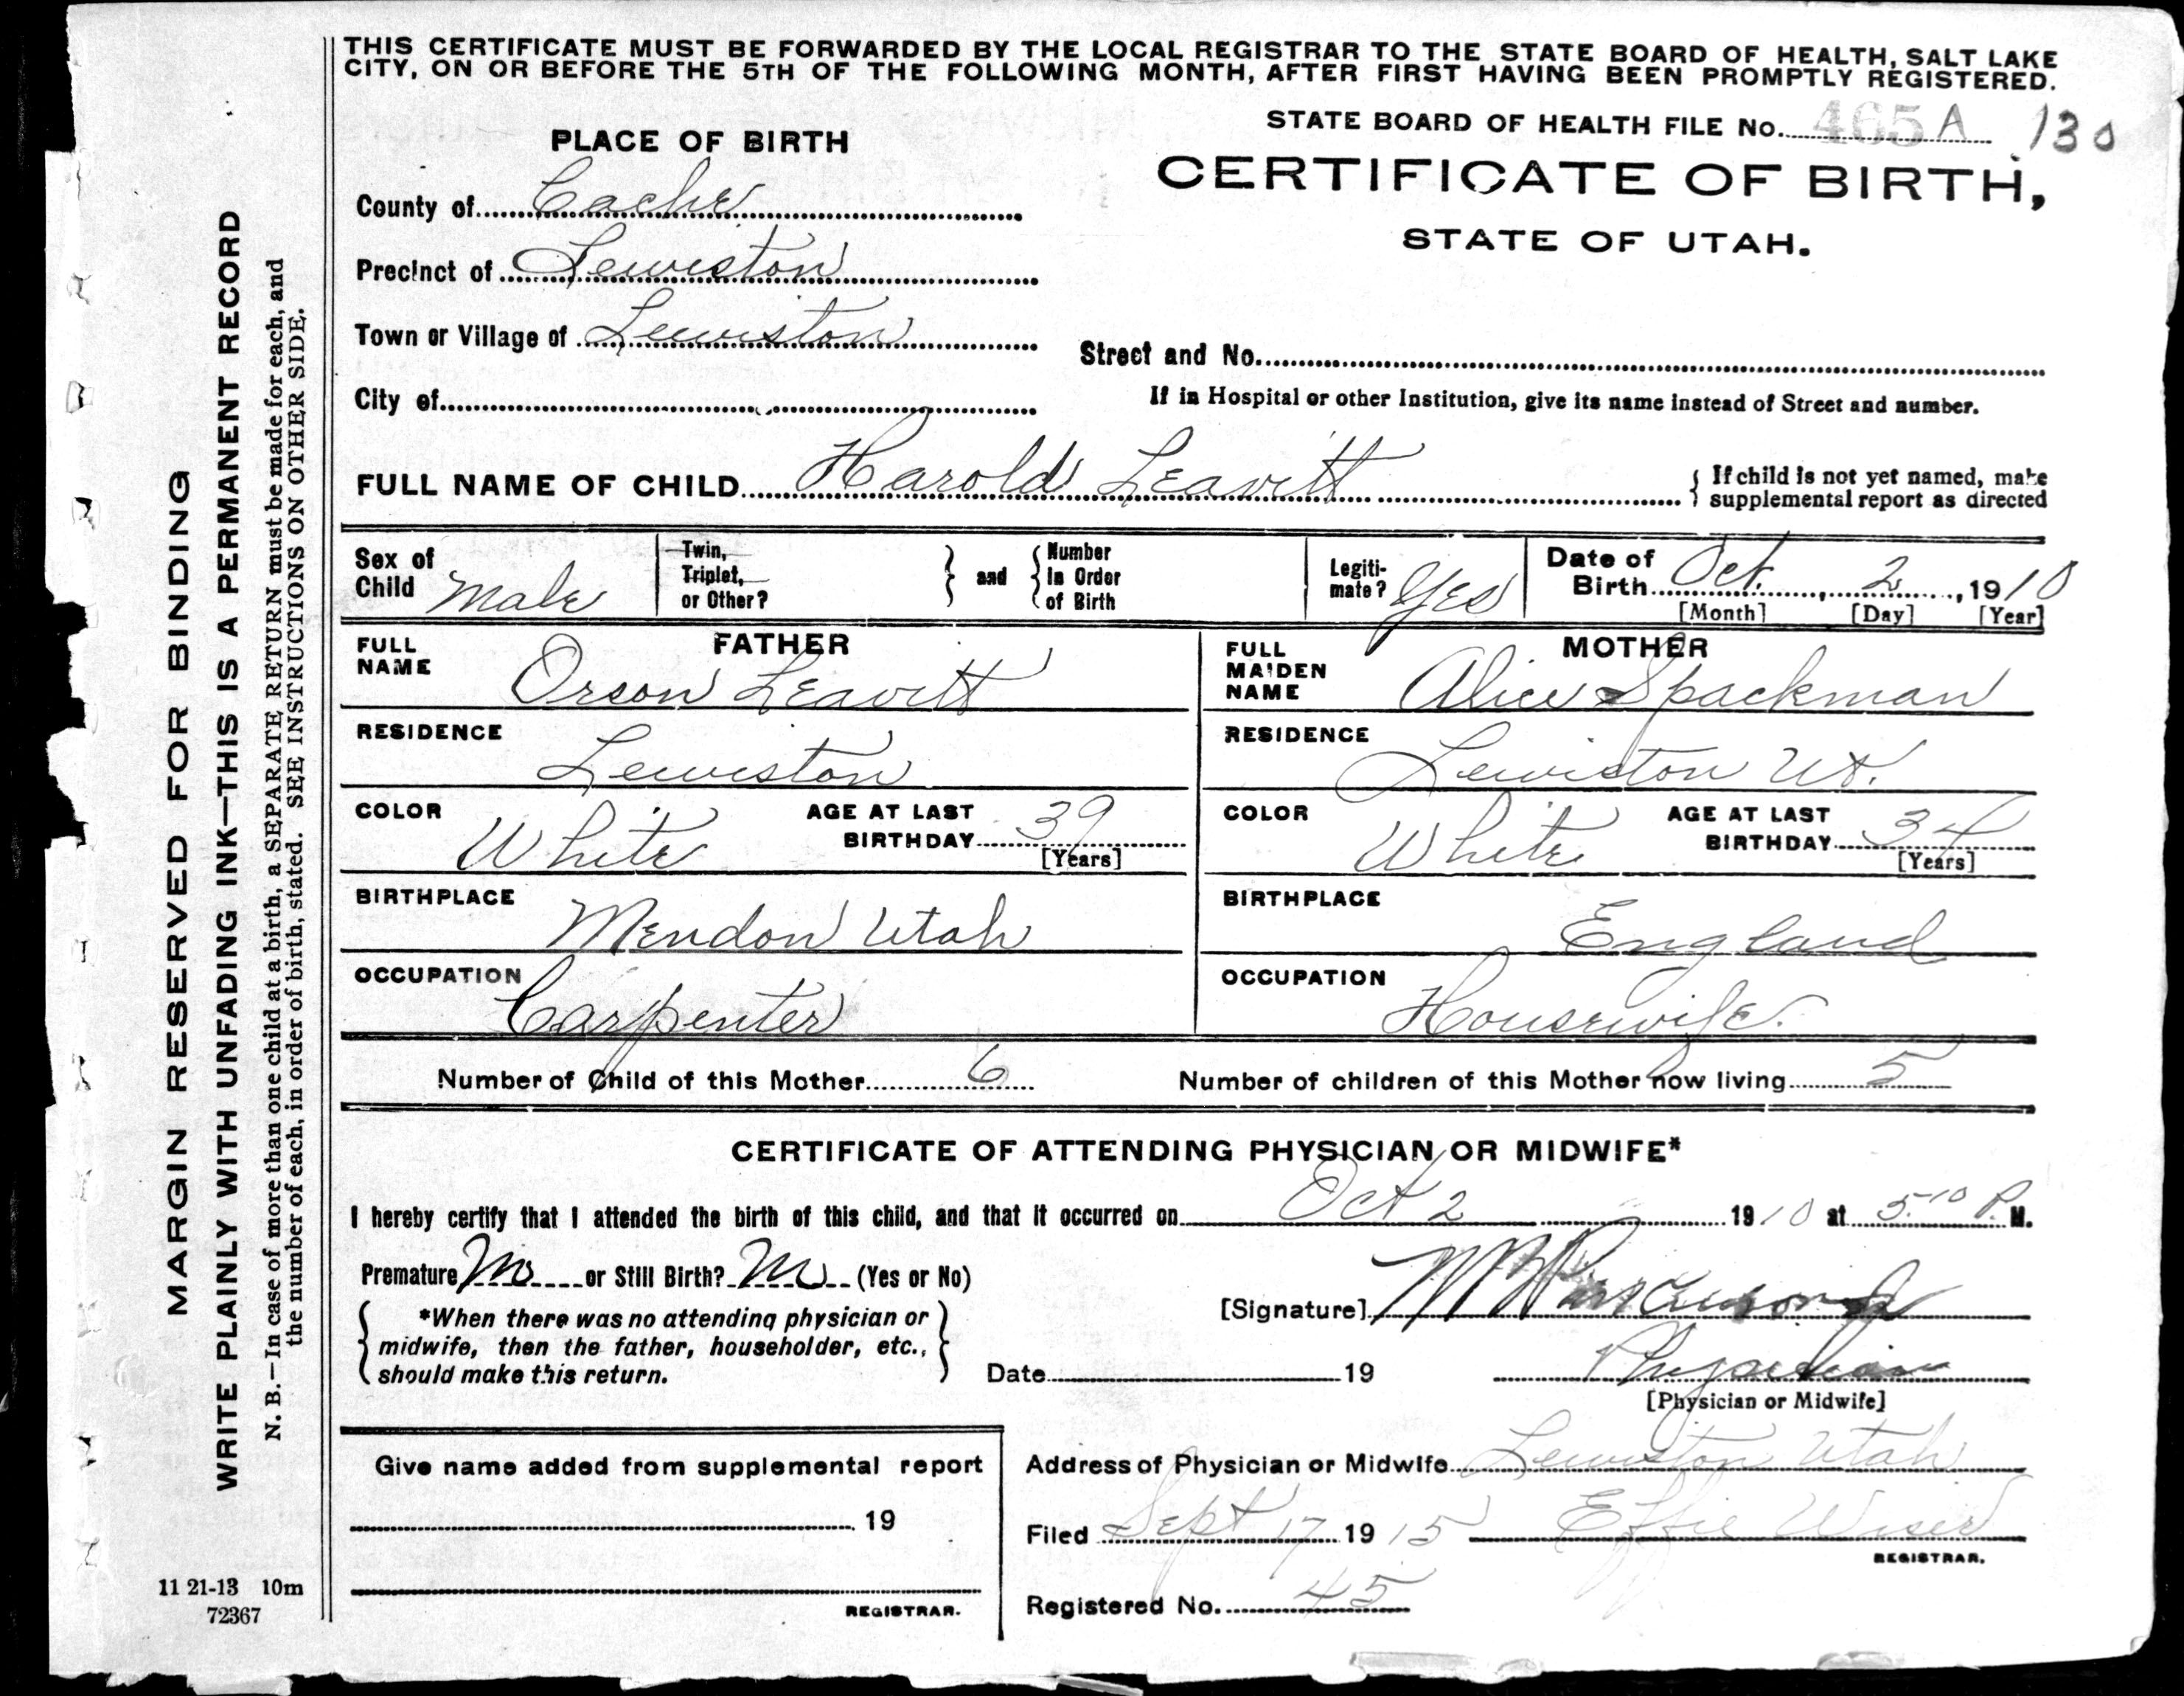 THIS CERTIFICATE MUST BE FORWARDED BY THE LOCAL REGISTRAR TO THE STATE BOARD OF HEALTH, SALT LAKE
CITY, ON OR BEFORE THE 5TH OF THE FOLLOWING MONTH, AFTER FIRST HAVING BEEN PROMPTLY REGISTERED.
STATE BOARD OF HEALTH FILE No. 465 A 130
PLACE OF BIRTH
CERTIFICATE OF BIRTH,
STATE OF UTAH.
County of Cache
Precinct of Lewiston
Town or Village of Lewiston
Street and No.
City of
If in Hospital or other Institution, give its name instead of Street and number.
FULL NAME OF CHILD Harold Leavitt { If child is not yet named, make
supplemental report as directed
Sex of Child Male
Twin, Triplet, or Other? } and { Number In Order of Birth
Legiti-mate? Yes
Date of Birth Oct. 2, 1910
[Month] [Day] [Year]
FATHER
FULL NAME Orson Leavitt
MOTHER
FULL MAIDEN NAME Alice Spackman
RESIDENCE Lewiston
RESIDENCE Lewiston Ut.
COLOR White AGE AT LAST BIRTHDAY 39 [Years]
COLOR White AGE AT LAST BIRTHDAY 34 [Years]
BIRTHPLACE Mendon Utah
BIRTHPLACE England
OCCUPATION Carpenter
OCCUPATION Housewife.
Number of Child of this Mother 6 Number of children of this Mother now living 5
CERTIFICATE OF ATTENDING PHYSICIAN OR MIDWIFE*
I hereby certify that I attended the birth of this child, and that it occurred on Oct 2 1910 at 5 10 P. M.
Premature No or Still Birth? No (Yes or No)
[Signature]
*When there was no attending physician or
midwife, then the father, householder, etc.,
should make this return.
Date 19
Physician
[Physician or Midwife]
Give name added from supplemental report
19
REGISTRAR.
Address of Physician or Midwife Lewiston Utah
Filed Sept 17 1915 Effie Wiser
REGISTRAR.
Registered No. 45
MARGIN RESERVED FOR BINDING
WRITE PLAINLY WITH UNFADING INK—THIS IS A PERMANENT RECORD
N. B.—In case of more than one child at a birth, a SEPARATE RETURN must be made for each, and
the number of each, in order of birth, stated. SEE INSTRUCTIONS ON OTHER SIDE.
11 21-13 10m
72367